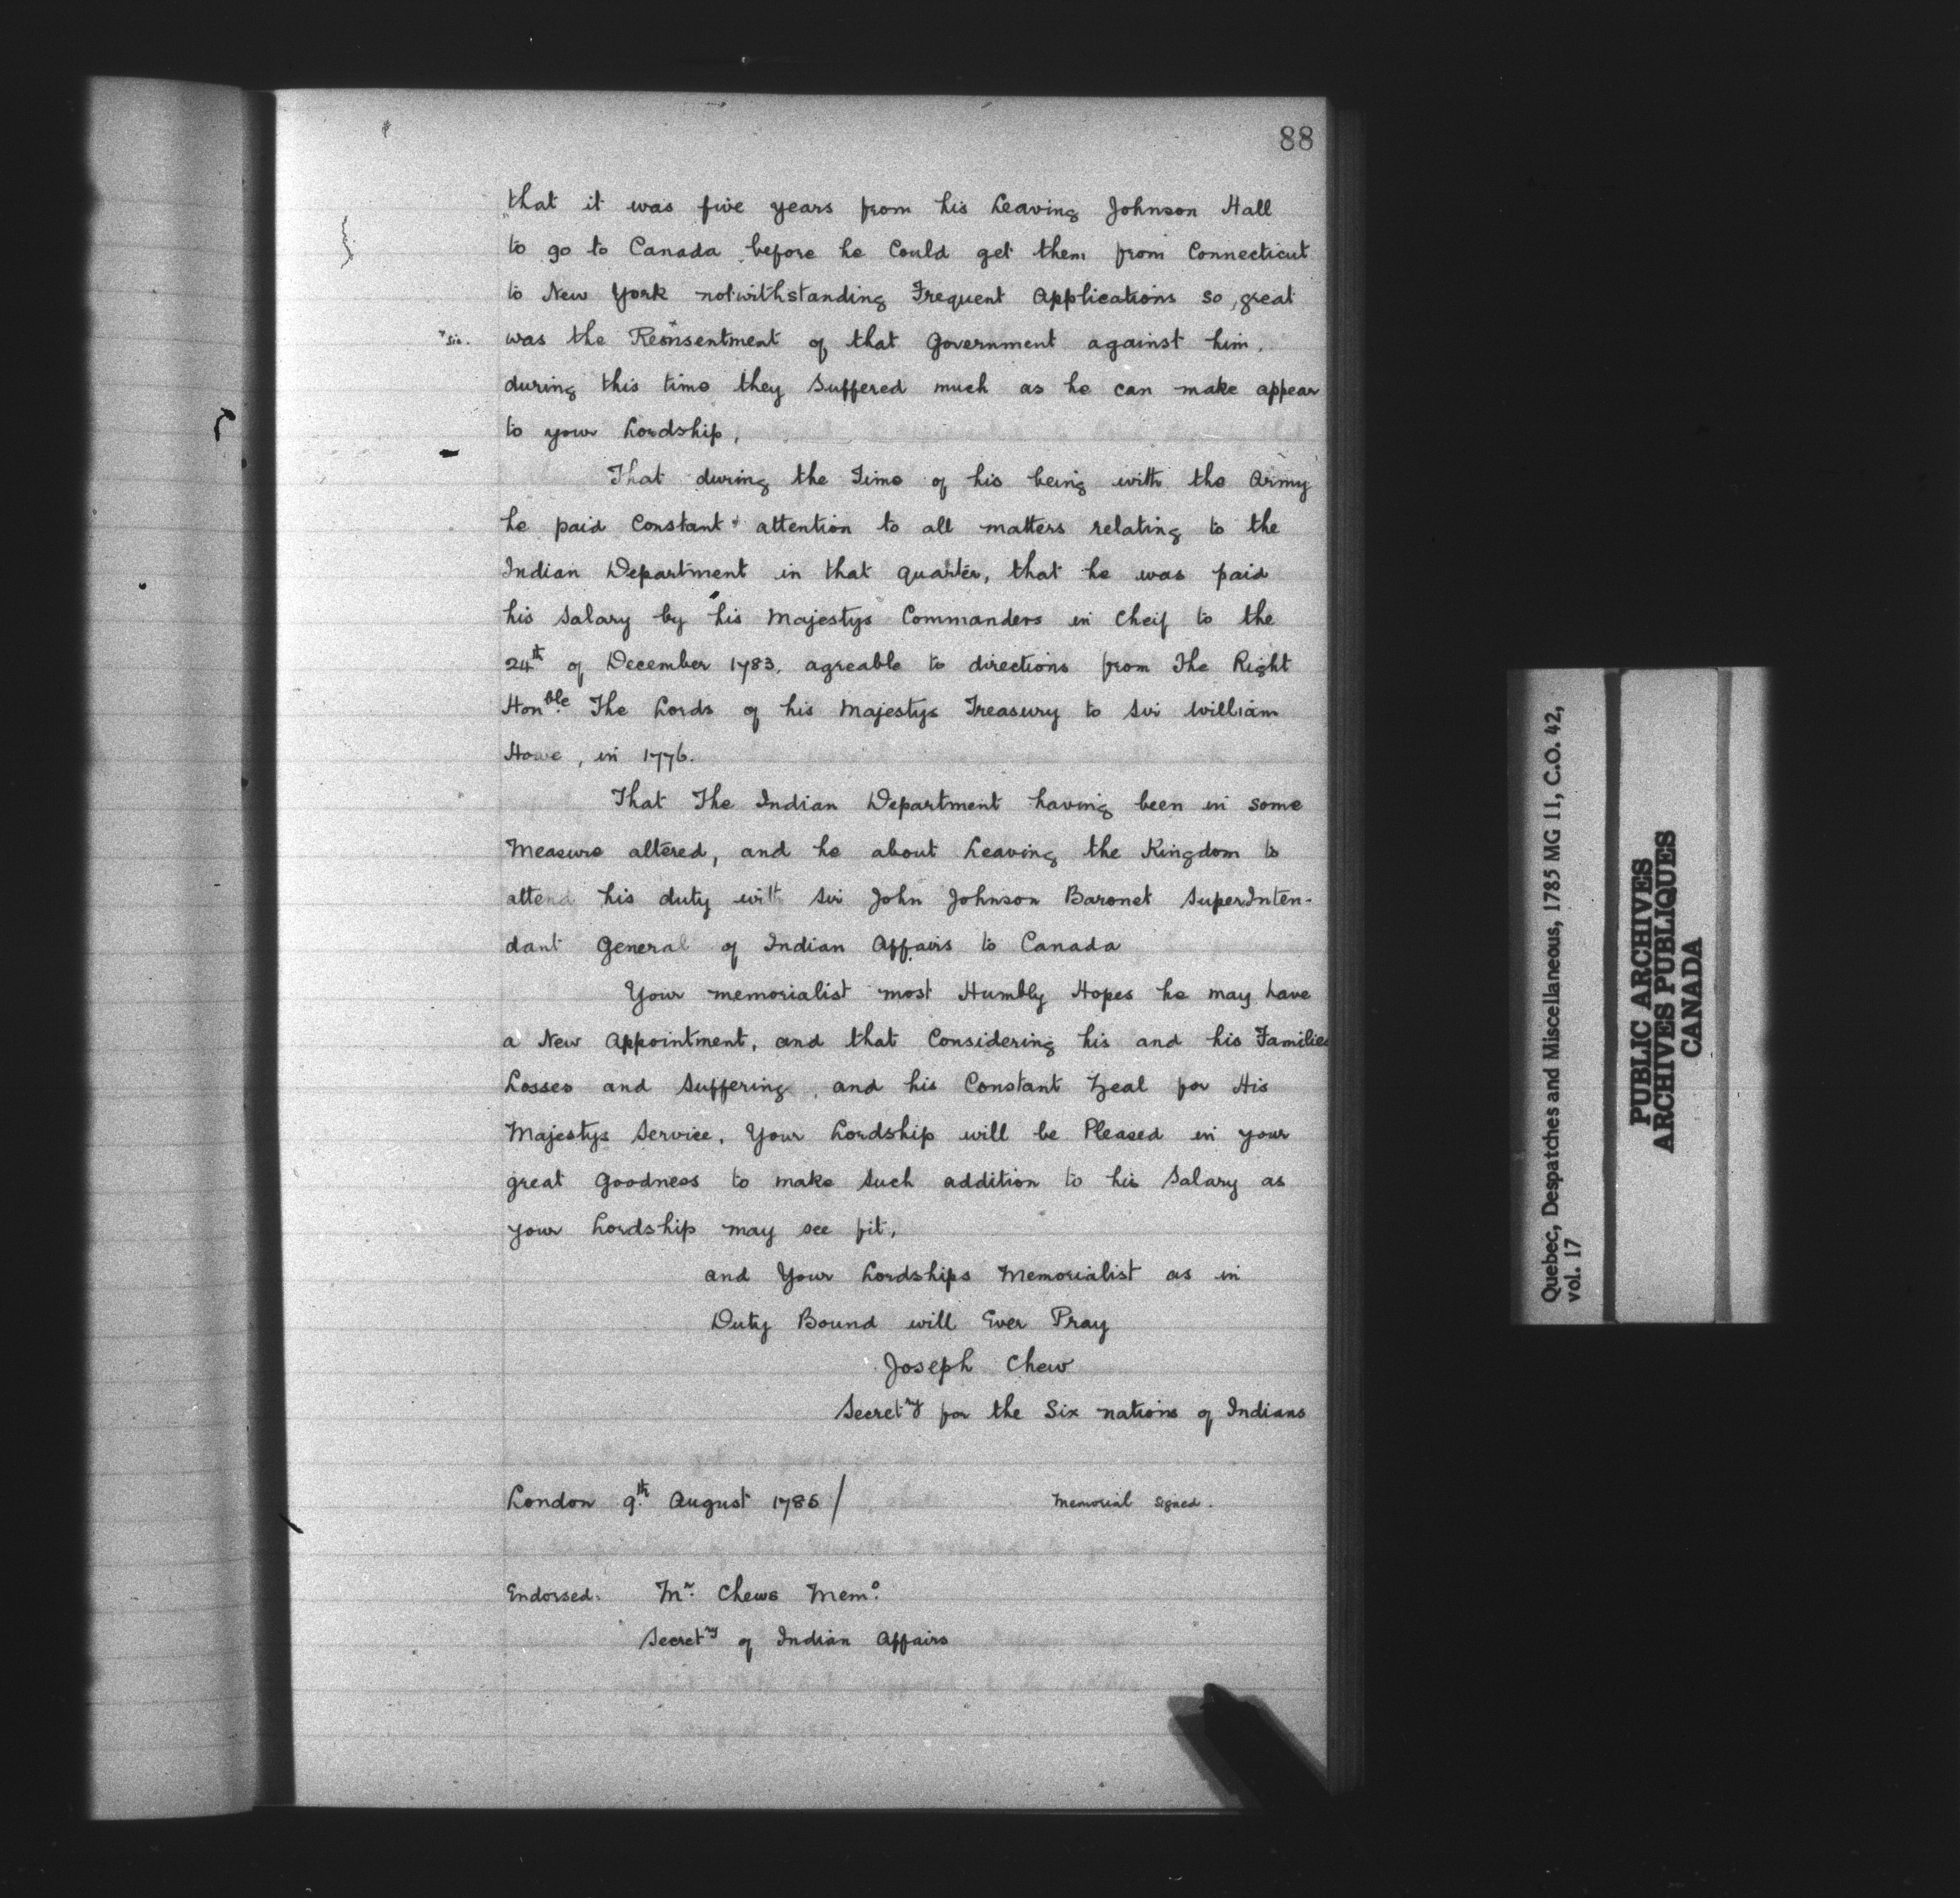 88
that it was five years from his Leaving Johnson Hall
to go to Canada before he Could get them from Connecticut
to New York notwithstanding Frequent Applications so great
*sic. was the Reonsentment* of that Government against him,
during this time they Suffered much as he can make appear
to your Lordship,
That during the Time of his being with the Army
he paid Constant attention to all matters relating to the
Indian Department in that quarter, that he was paid
his Salary by his Majestys Commanders in Cheif to the
24th of December 1783, agreable to directions from The Right
Honble. The Lords of his Majestys Treasury to Sir William
Howe, in 1776.
That The Indian Department having been in some
Measure altered, and he about Leaving the Kingdom to
attend his duty with Sir John Johnson Baronet SuperInten-
dant General of Indian Affairs to Canada
Your memorialist most Humbly Hopes he may have
a New Appointment, and that Considering his and his Families
Losses and Suffering, and his Constant Zeal for His
Majestys Service, Your Lordship will be Pleased in your
great Goodness to make Such addition to his Salary as
your Lordship may see fit,
and Your Lordships Memorialist as in
Duty Bound will Ever Pray
Joseph Chew
Secretry for the Six nations of Indians
London 9th. August 1785/ Memorial Signed.
Endorsed: Mr. Chews Memo.
Secretry of Indian Affairs
Quebec, Despatches and Miscellaneous, 1785 MG 11, C.O. 42,
vol. 17
PUBLIC ARCHIVES
ARCHIVES PUBLIQUES
CANADA